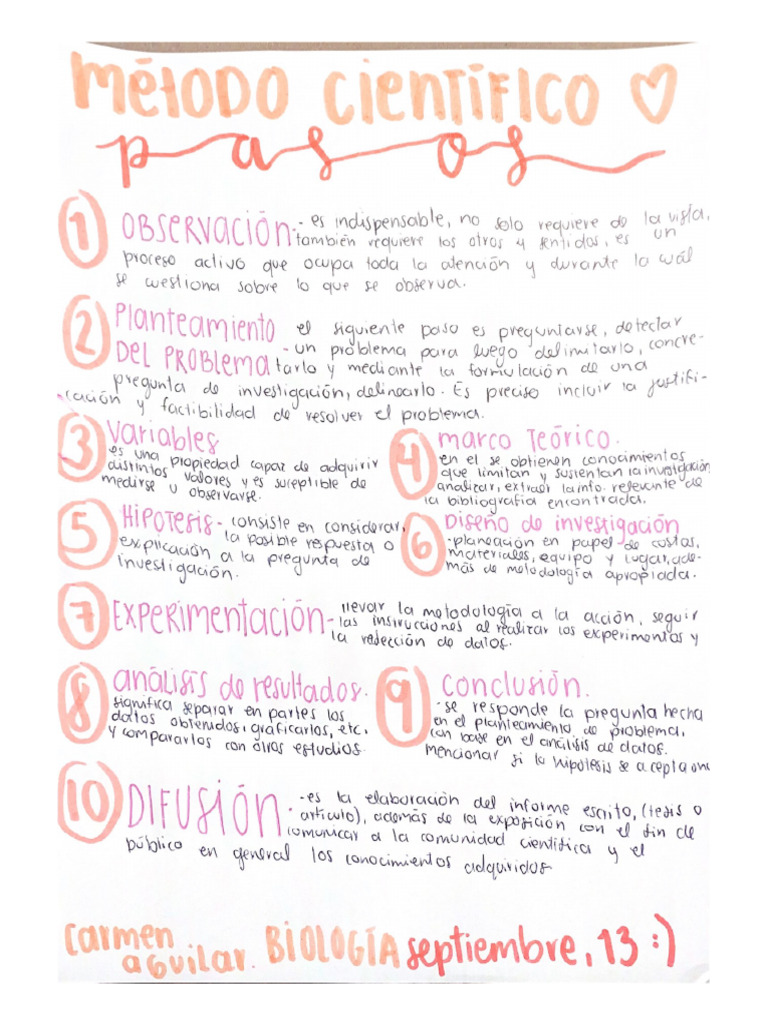 MÉTODO CIENTÍFICO ♡
pasos
1 OBSERVACIÓN.- es indispensable, no solo requiere de la vista,
también requiere los otros 4 sentidos, es un
proceso activo que ocupa toda la atención y durante la cuál
se cuestiona sobre lo que se observa.
2 Planteamiento el siguiente paso es preguntarse, detectar
DEL PROBLEMA - un problema para luego delimitarlo, concre-
tarlo y mediante la formulación de una
pregunta de investigación, delinearlo. Es preciso incluir la justifi-
cación y factibilidad de resolver el problema.
3 Variables
es una propiedad capaz de adquirir
distintos valores y es suceptible de
medirse u observarse.
4 marco Teórico.
en el se obtienen conocimientos
que limitan y sustentan la investigación
analizar, extraer la info. relevante de
la bibliografía encontrada.
5 HIPOTESIS - consiste en considerar,
la posible respuesta o
explicación a la pregunta de
investigación.
6 Diseño de investigación
-planeación en papel de costos,
materiales, equipo y lugar, ade-
más de metodología apropiada.
7 EXPERIMENTACIÓN - llevar la metodología a la acción, seguir
las instrucciones al realizar los experimentos y
la
de datos.
8 análisis de resultados.
significa separar en partes los
datos obtenidos, graficarlos, etc.
y compararlos con otros estudios.
9 Conclusión.
-se responde la pregunta hecha
en el planteamiento de problema,
con base en el análisis de datos.
mencionar si la hipótesis se acepta o no
10 DIFUSIÓN - es la elaboración del informe escrito, (tesis o
artículo), además de la exposición con el fin de
comunicar a la comunidad científica y el
público en general los conocimientos adquiridos
carmen
aguilar. BIOLOGÍA septiembre, 13 :)